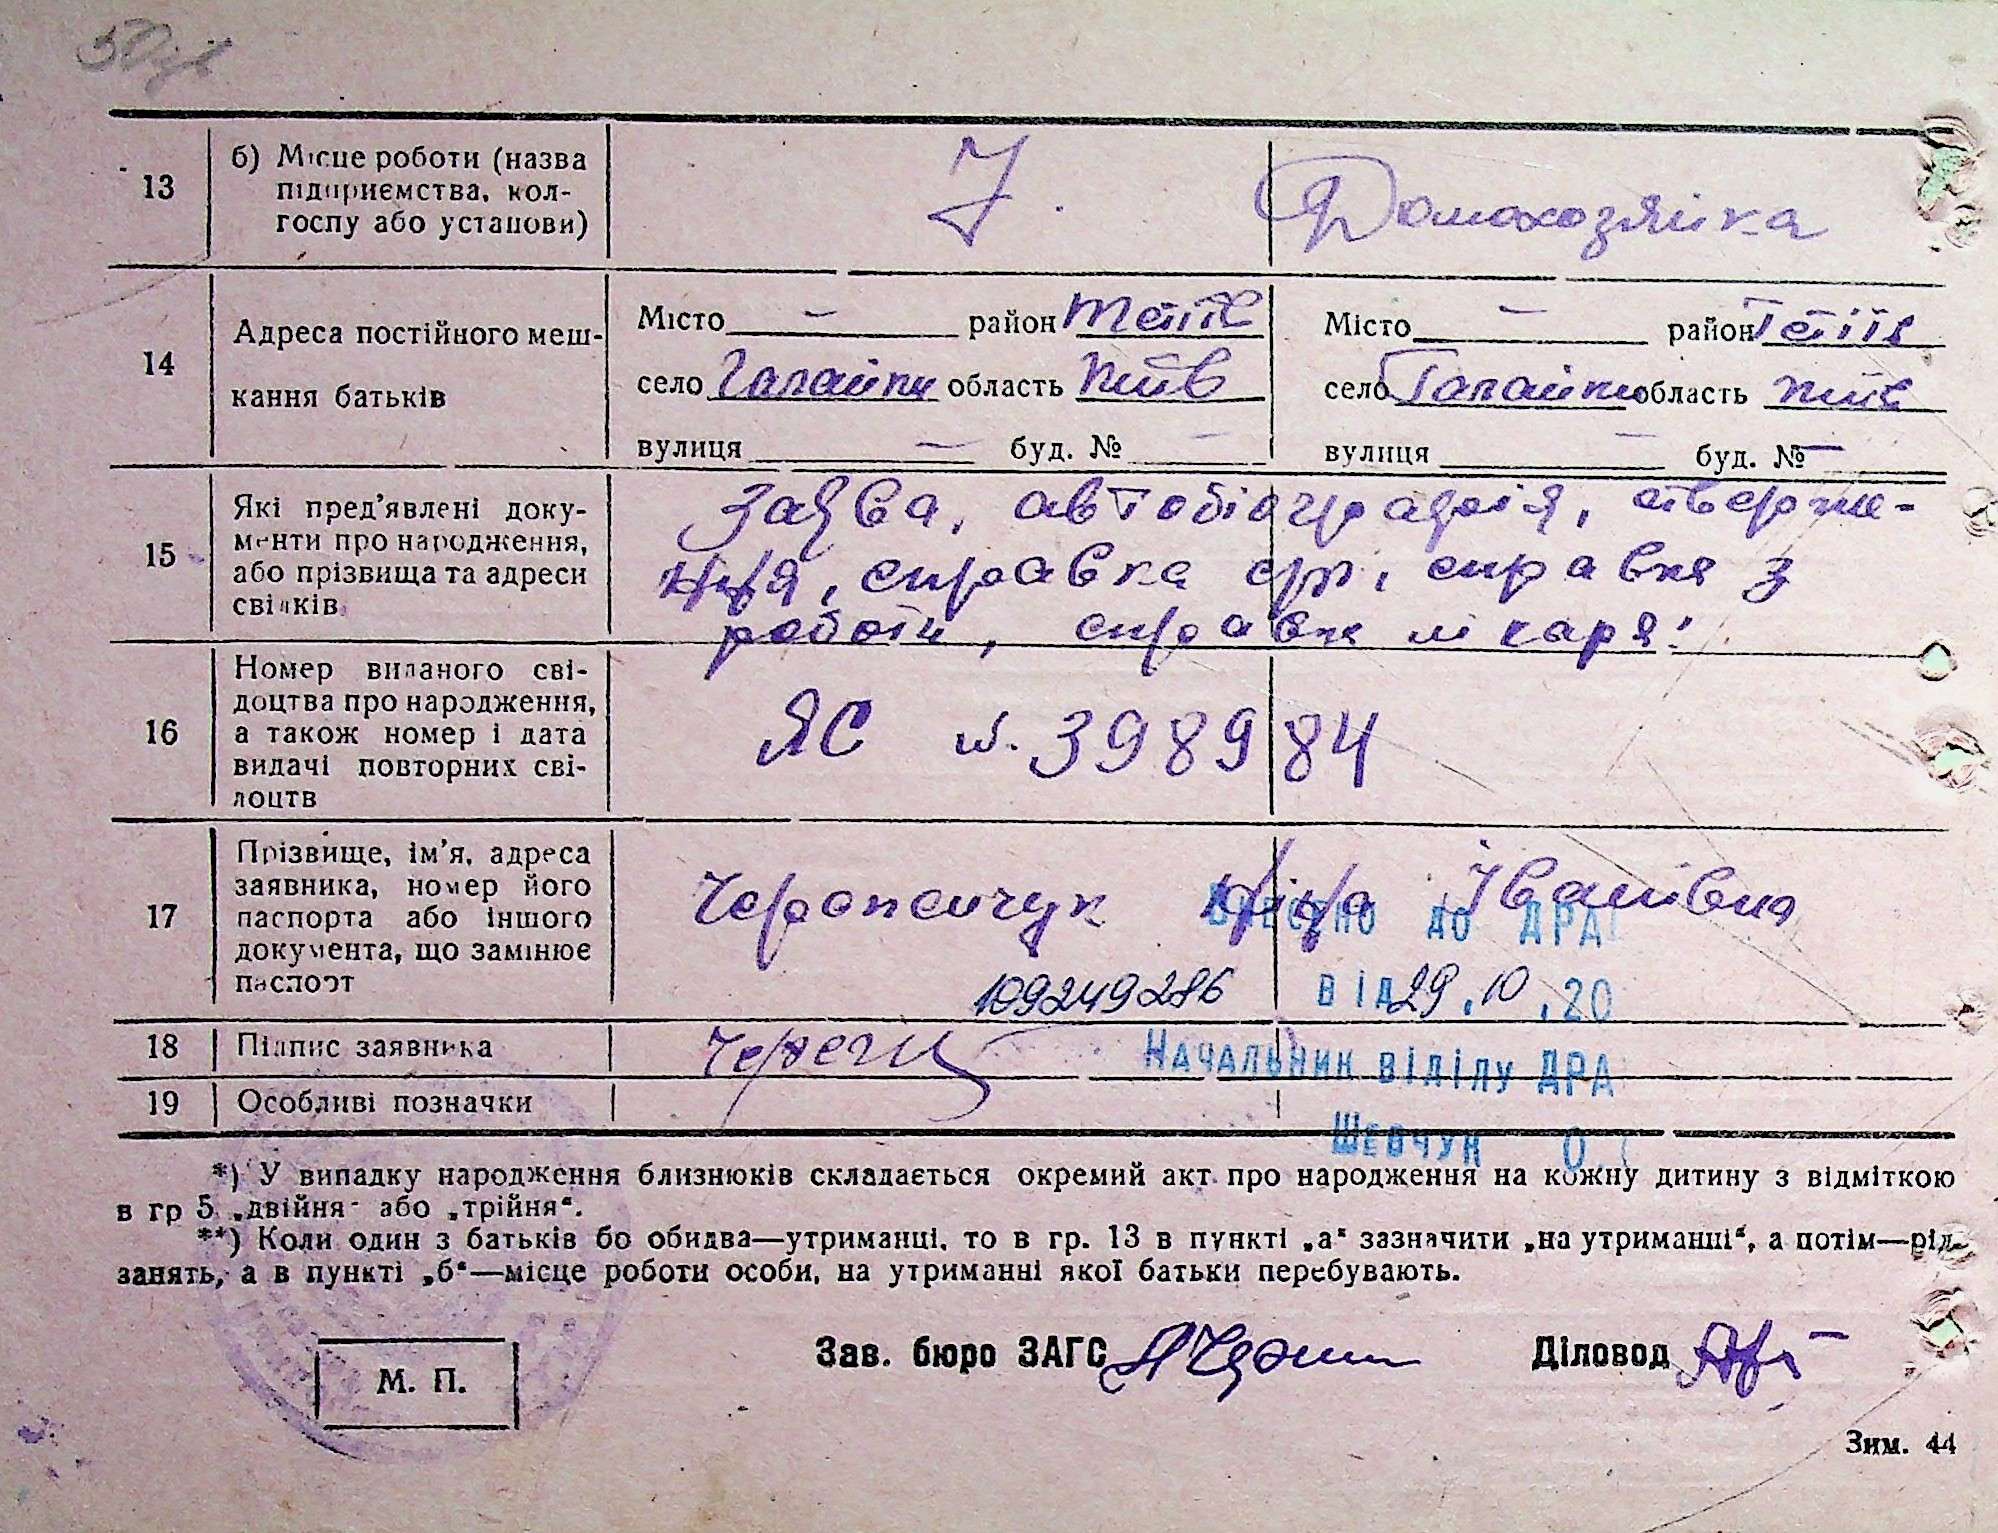 13
б) Місце роботи (назва
підприємства, кол-
госпу або установи)
Домохозяйка
14
Адреса постійного меш-
кання батьків
Місто — район
село Галайки область Київ
вулиця — буд. № —
Місто — район Тетіїв
село Галайки область Київ
вулиця — буд. № —
15
Які пред'явлені доку-
менти про народження,
або прізвища та адреси
свідків
Заява, автобіографія, стверже-
ння, справка с/р, справка з
роботи, справка лікаря.
16
Номер виданого сві-
доцтва про народження,
а також номер і дата
видачі повторних сві-
доцтв
ЯС №. 398984
17
Прізвище, ім'я, адреса
заявника, номер його
паспорта або іншого
документа, що замінює
паспорт
Іванівна
Внесено до ДРА
109249286
від 29.10.20
18
Підпис заявника
Начальник відділу ДРА
19
Особливі позначки
Шевчук О.
*) У випадку народження близнюків складається окремий акт про народження на кожну дитину з відміткою
в гр 5 „двійня" або „трійня".
**) Коли один з батьків бо обидва—утриманці, то в гр. 13 в пункті „а" зазначити „на утриманні", а потім—рід
занять, а в пункті „б"—місце роботи особи, на утриманні якої батьки перебувають.
М. П.
Зав. бюро ЗАГС
Діловод
Зим. 44